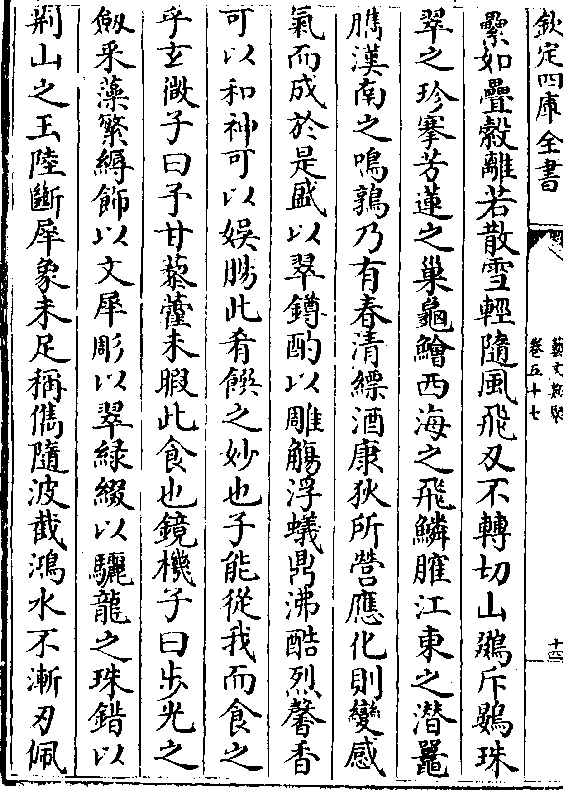 欽定四庫全書
藝文類聚
卷五十七
十四
纍如疊縠離若散雪輕隨風飛刃不轉切山鵽斥鷃珠
翠之珍搴芳蓮之巢龜鱠西海之飛鱗臛江東之潛鼉
臇漢南之鳴鶉乃有春清縹酒康狄所營應化則變感
氣而成於是盛以翠鐏酌以雕觴浮蟻鼎沸酷烈馨香
可以和神可以娛腸此肴饌之妙也子能從我而食之
乎玄微子曰予甘藜藿未暇此食也鏡機子曰步光之
劔釆藻繁縟飾以文犀彫以翠緑綴以驪龍之珠錯以
荆山之玉陸斷犀象未足稱儁隨波截鴻水不漸刃佩